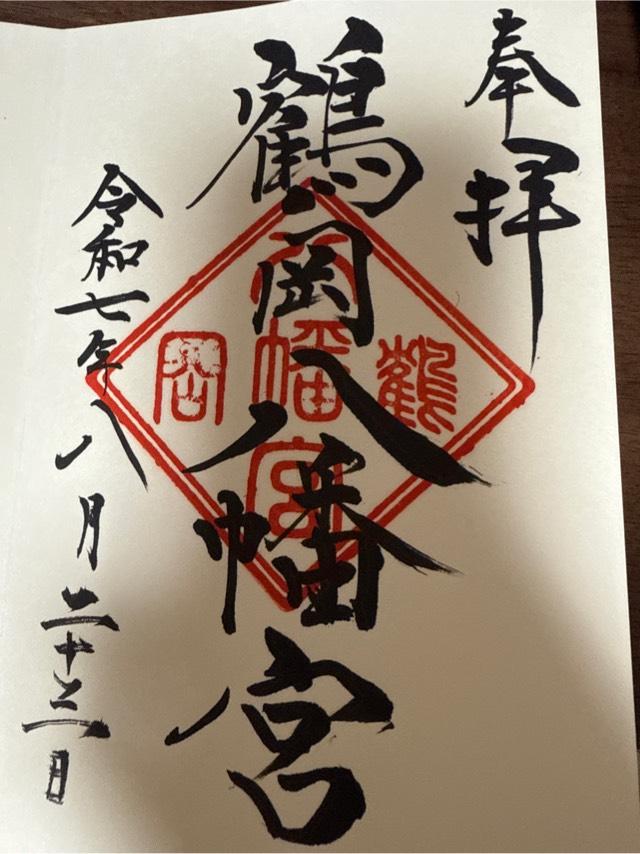 奉拝
鶴岡八幡宮
鶴岡
八幡宮
令和七年八月二十三日